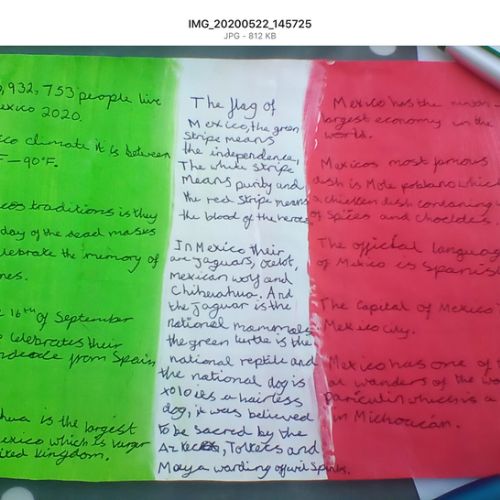 IMG_20200522_145725
JPG - 812 KB
,932,753 people live
exico 2020.
co climate it is between
F-90°F.
traditions is they
day of the dead masks
elebrate the mimory of
nes.
16th of September
celebrates their
from Spain
hua is the largest
exico which is larger
nited Kingdom.
The flag of
Mexico, the green
stripe means
the independence,
The white stripe
means purity and
the red stripe means
the blood of the heroes
In Mexico their
are jaguars, ocelot,
mexican wolf and
Chihuahua. And
the jaguar is the
national mammals
the green turtle is the
national reptile and
the national dog is
xolo its a hairless
dog, it was believed
to be sacred by the
Toltecs and
Maya warding of wil Spirits.
Mexico has the
largest economy in the
world.
Mexicos most famous
dish is Mole poblano which
a chicken dish containing
of spices and
The official language
of Mexico is Spanish
The Capital of Mexico
Mexico city.
Mexico has one of
wanders of the
which is a
in Michoacán.